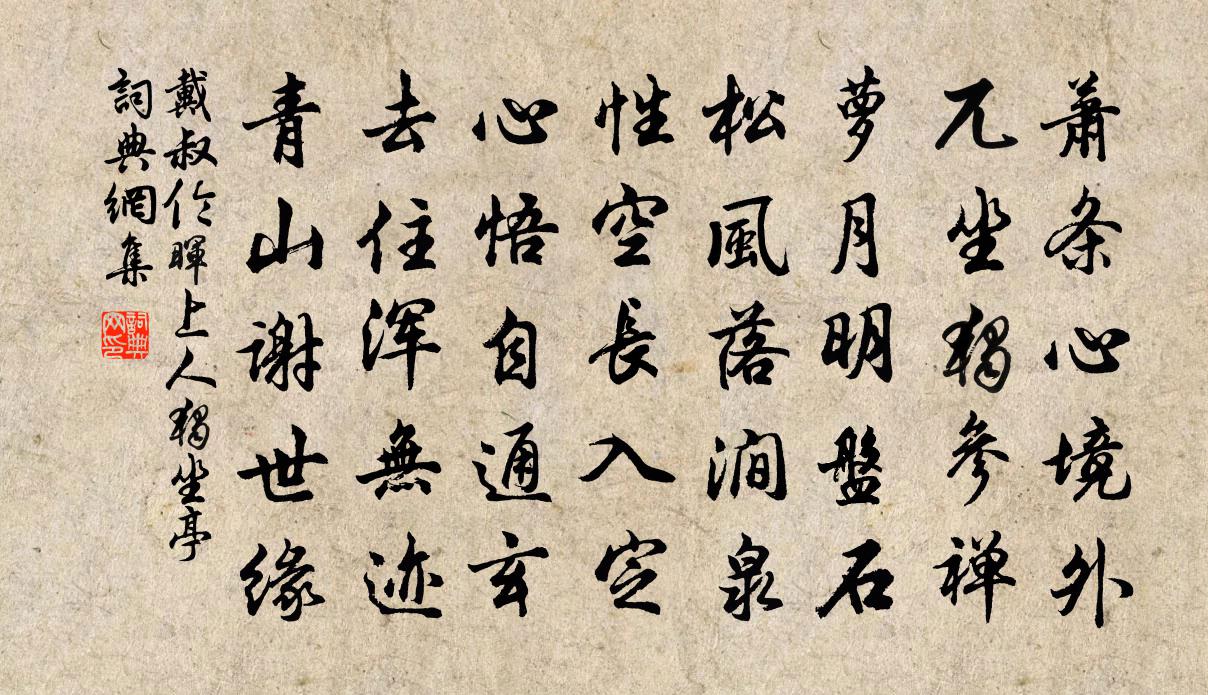 蕭条心境外
兀坐獨參禅
萝月明盤石
松風落澗泉
性空長入定
心悟自通玄
去住浑無迹
青山謝世缘
戴叔伦暉上人獨坐亭
詞典網集
詞典网印